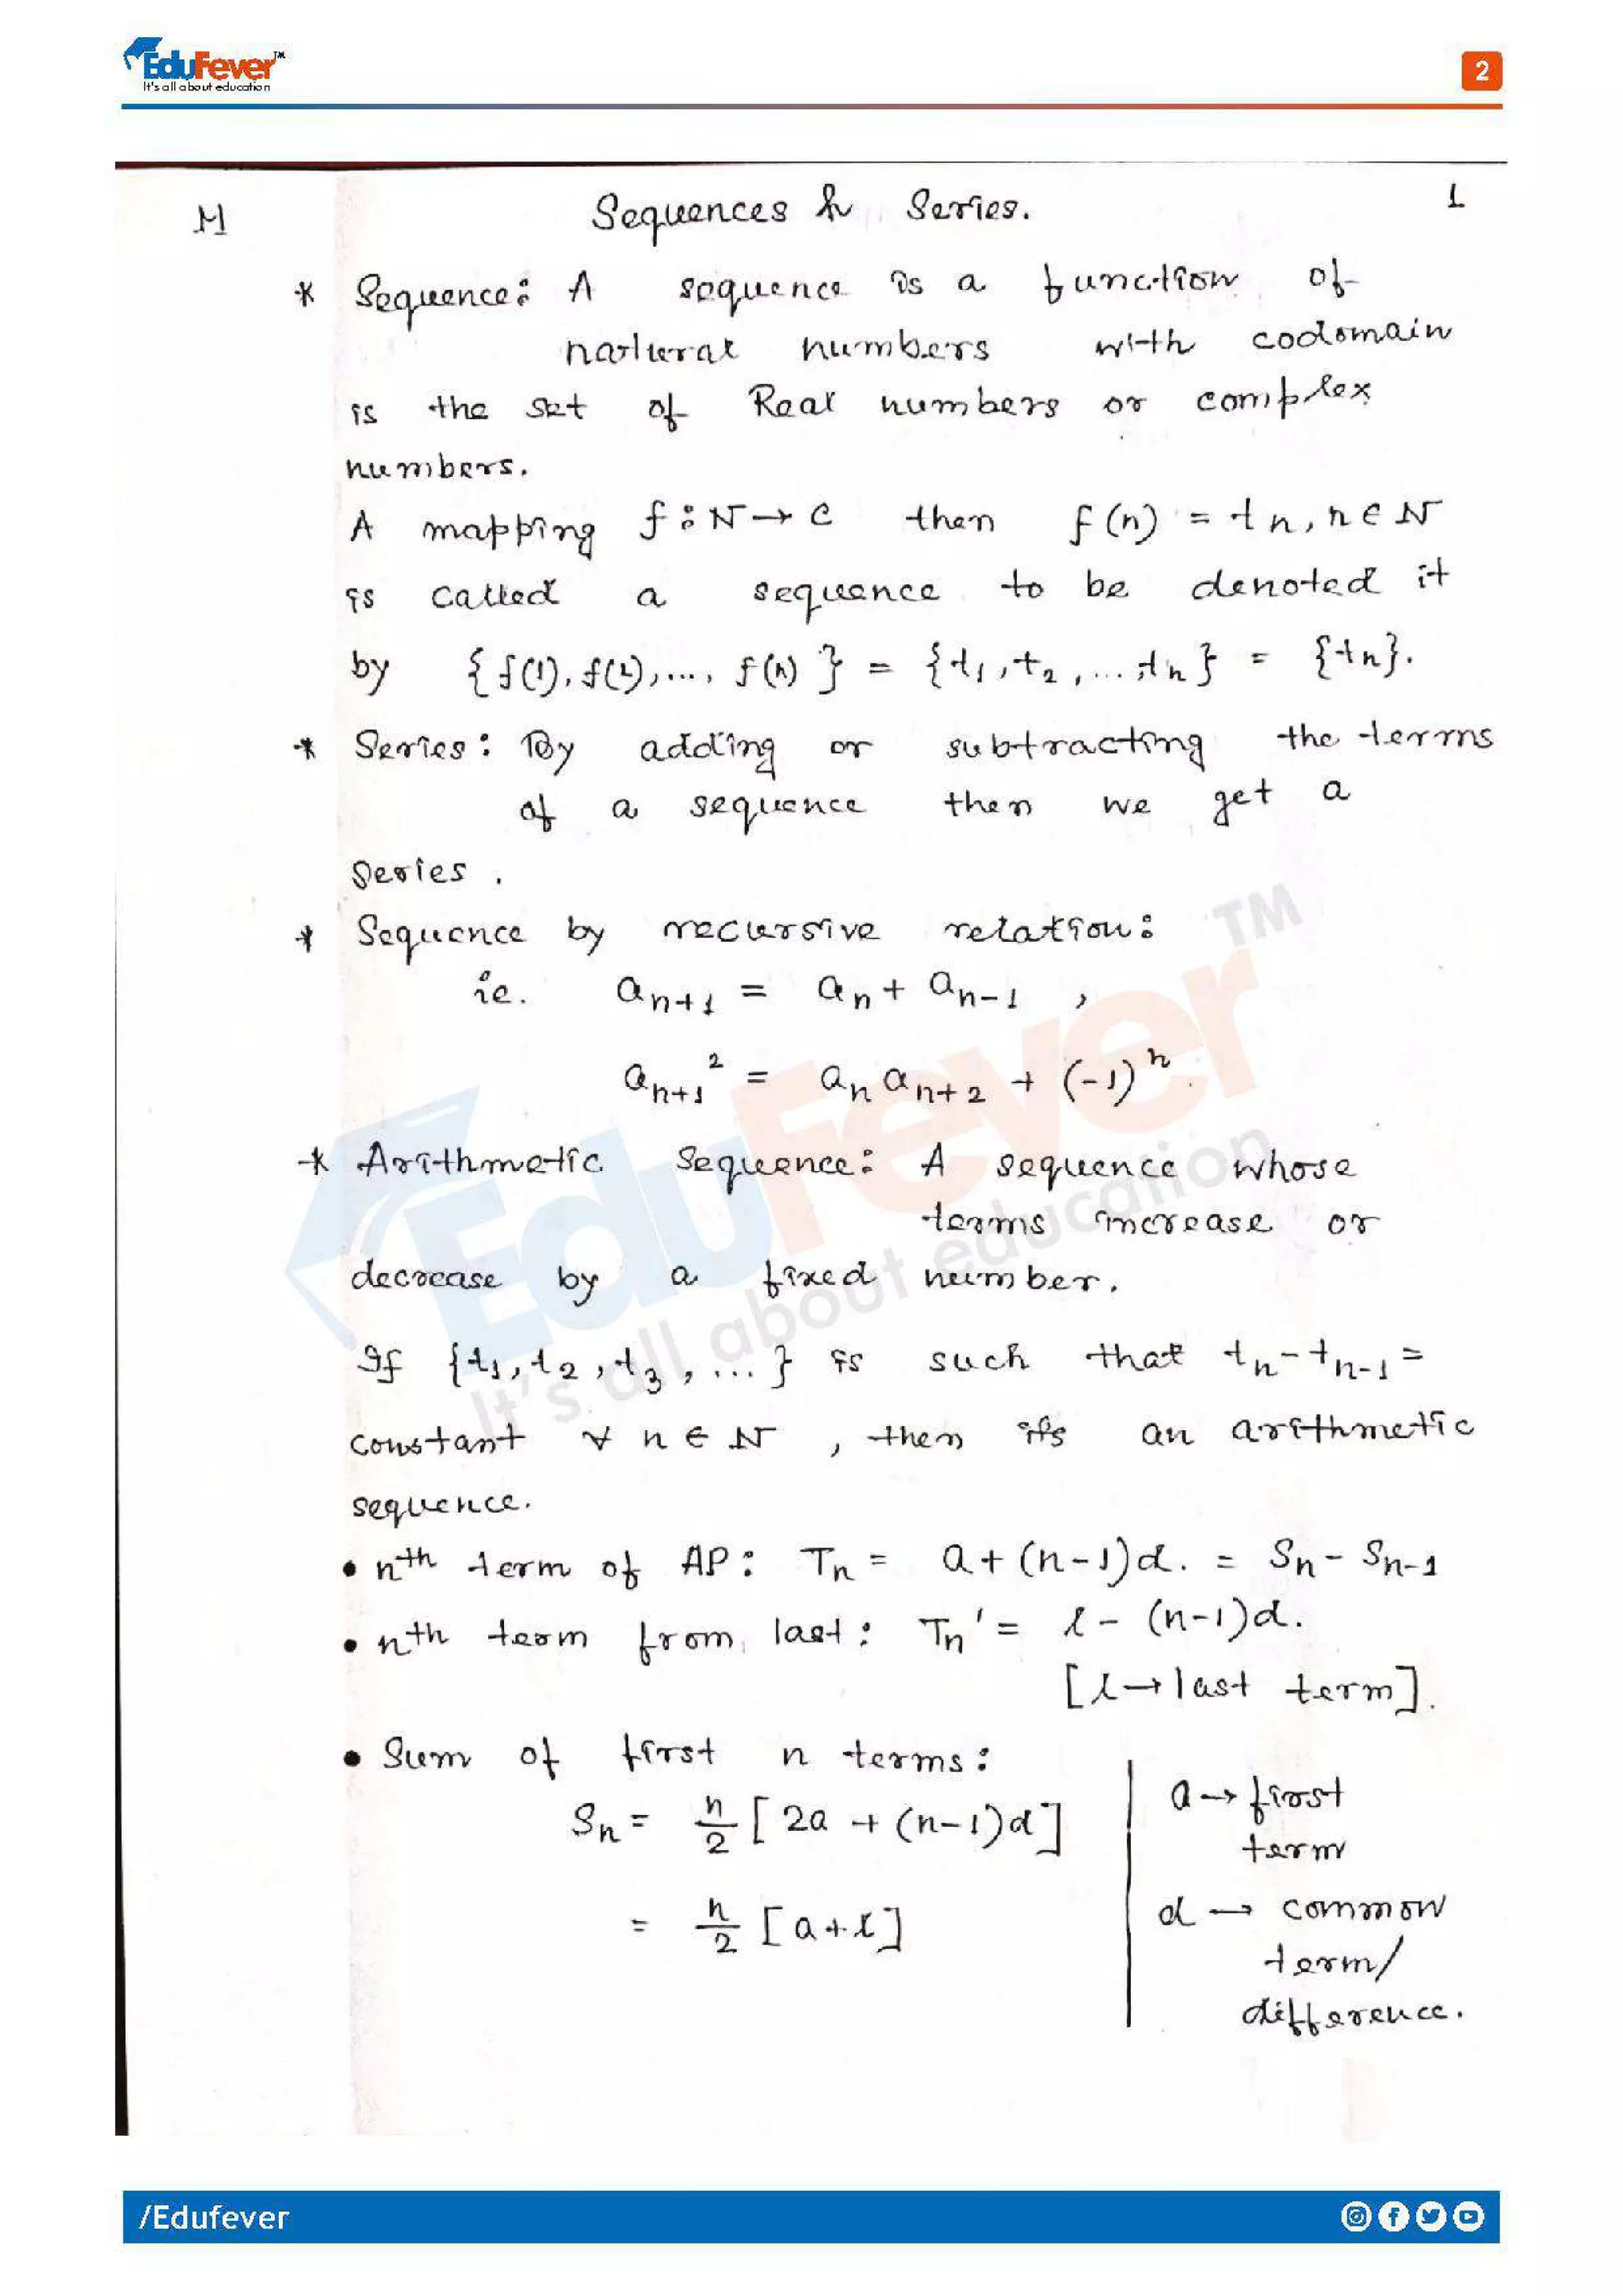 EduFever™
It's all about education
2
M
Sequences & Series.
1
* Sequence: A sequence is a function of
natural numbers with codomain
is the set of Real numbers or complex
numbers.
A mapping f : N → C then f(n) = tn, n ∈ N
is called a sequence to be denoted it
by {f(1), f(2), ..., f(n)} = {t₁, t₂, ... tn} = {tn}.
* Series: By adding or subtracting the terms
of a sequence then we get a
series.
* Sequence by recursive relation:
ie. aₙ₊₁ = aₙ + aₙ₋₁ ,
aₙ₊₁² = aₙ aₙ₊₂ + (-1)ⁿ.
* Arithmetic Sequence: A sequence whose
terms increase or
decrease by a fixed number.
If {t₁, t₂, t₃, ...} is such that tₙ - tₙ₋₁ =
constant ∀ n ∈ N, then it's an arithmetic
sequence.
• nth term of AP: Tₙ = a + (n-1)d. = Sₙ - Sₙ₋₁
• nth term from last: Tₙ' = l - (n-1)d.
[l → last term].
• Sum of first n terms:
Sₙ = n/2 [2a + (n-1)d]
= n/2 [a+l]
a → first
term
d → common
term/
difference.
EduFever™
It's all about education
/Edufever